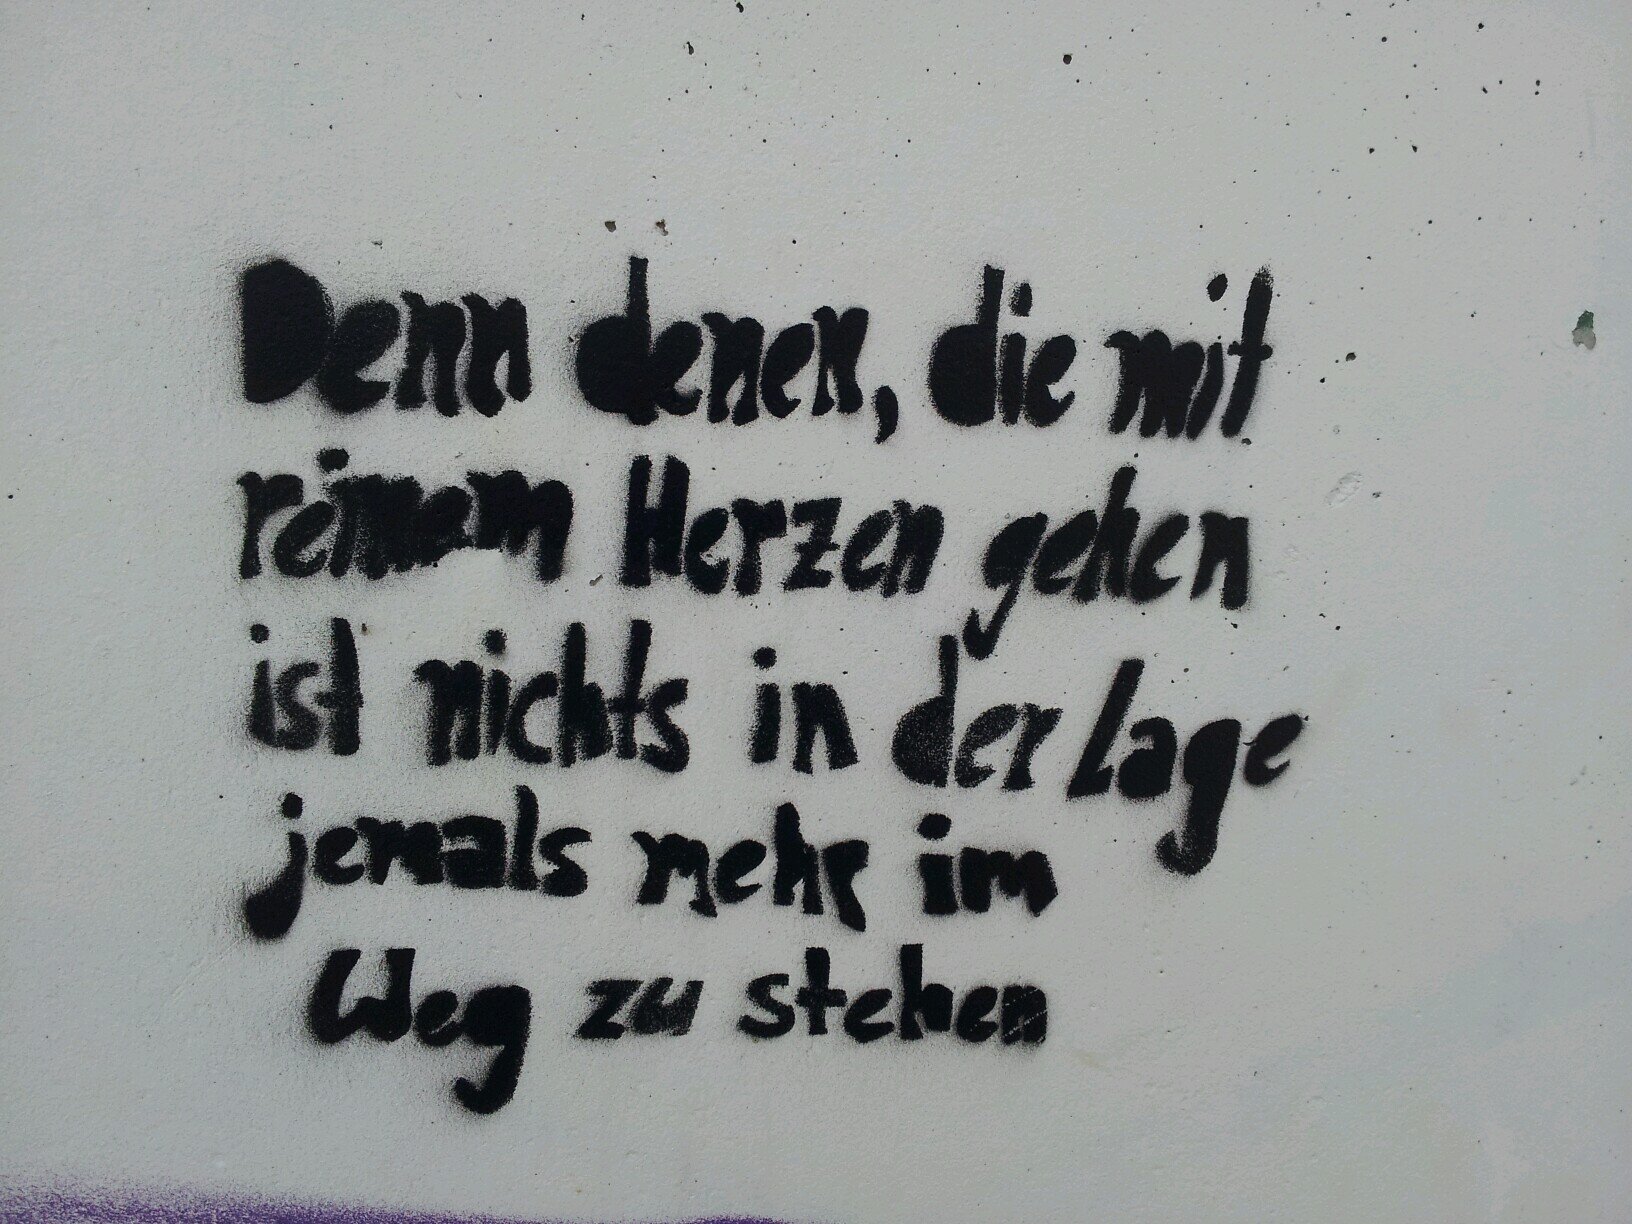 Denn denen, die mit
reinem Herzen gehen
ist nichts in der Lage
jemals mehr im
Weg zu stehen